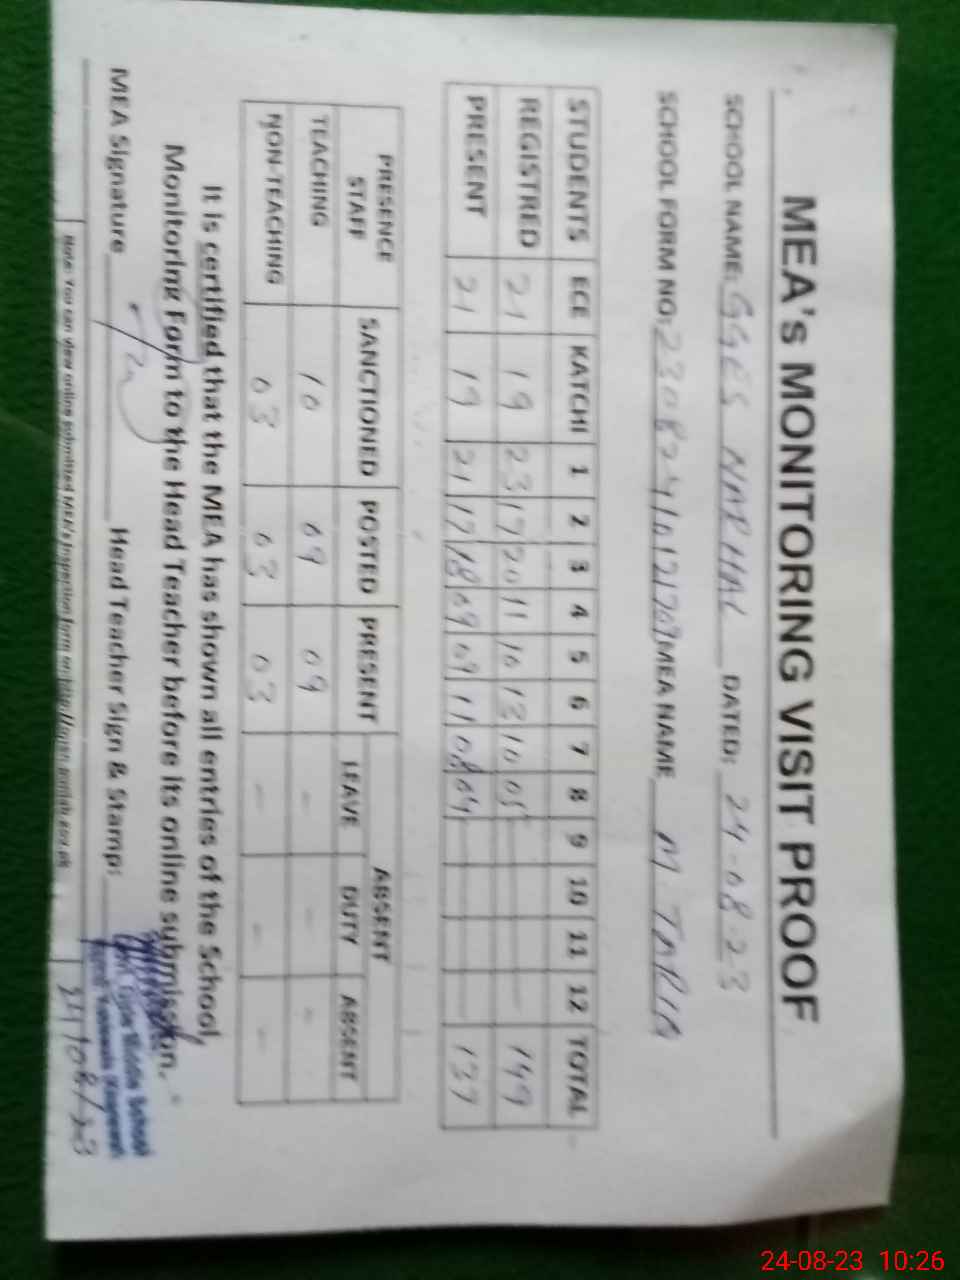 MEA's MONITORING VISIT PROOF
SCHOOL NAME: GGES NARHAL DATED: 24-08-23
SCHOOL FORM NO: MEA NAME M. TARIQ
STUDENTS ECE KATCHI 1 2 3 4 5 6 7 8 9 10 11 12 TOTAL
REGISTRED 21 19 23 17 20 11 10 13 10 05 - - - - 149
PRESENT 21 19 21 17 18 09 09 11 08 04 - - - - 137
PRESENCE STAFF SANCTIONED POSTED PRESENT ABSENT
LEAVE DUTY ABSENT
TEACHING 10 09 09 - - -
NON-TEACHING 03 03 03 - - -
It is certified that the MEA has shown all entries of the School,
Monitoring Form to the Head Teacher before its online submission.
MEA Signature Head Teacher Sign & Stamp:
Girls Middle School
24/08/23
Note: You can view online submitted MEA's inspection form on
24-08-23 10:26